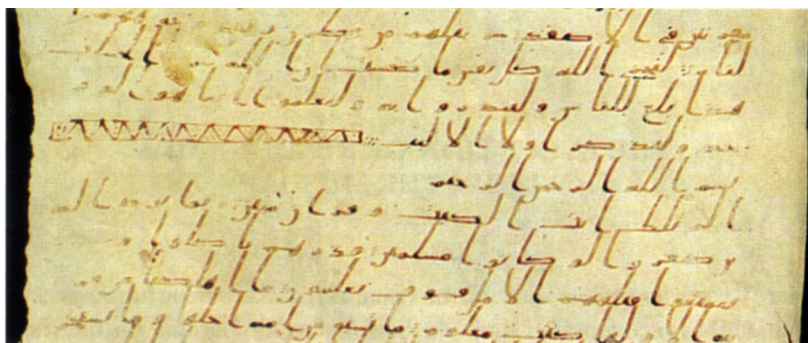 مقرنين في الاصفد سربيلهم من قطرن وتغشى
النار ليجزي الله كل نفس ما كسبت ان الله سريع الحساب
هذا بلغ للناس ولينذروا به وليعلموا انما هو اله و
حد وليذكر اولوا الالبب
بسم الله الرحمن الرحيم
الر تلك ايت الكتب وقران مبين ربما يود الذ
ين كفروا لو كانوا مسلمين ذرهم ياكلوا و
يتمتعوا ويلههم الامل فسوف يعلمون وما اهلكنا من
الا ولها كتب معلوم ما تسبق من امة اجلها وما